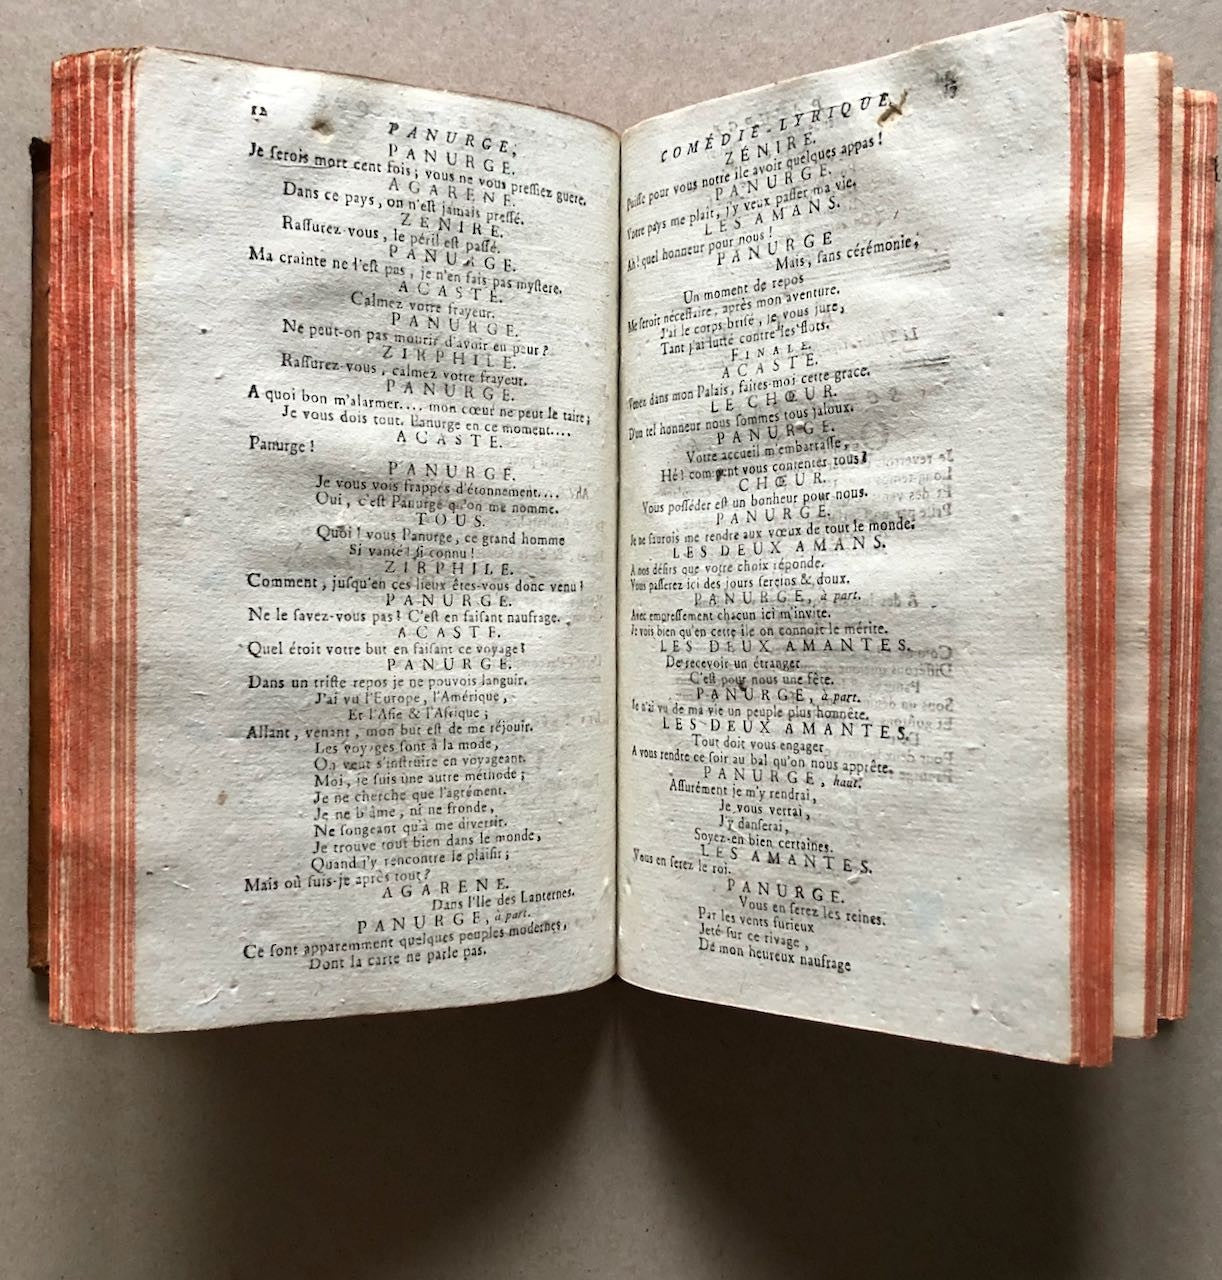 12
PANURGE,
PANURGE.
Je serois mort cent fois; vous ne vous pressiez guere.
AGARENE.
Dans ce pays, on n'est jamais pressé.
ZENIRE.
Rassurez-vous, le péril est passé.
PANURGE.
Ma crainte ne l'est pas, je n'en fais pas mystere.
ACASTE.
Calmez votre frayeur.
PANURGE.
Ne peut-on pas mourir d'avoir eu peur?
ZIRPHILE.
Rassurez-vous, calmez votre frayeur.
PANURGE.
A quoi bon m'alarmer.... mon cœur ne peut se taire;
Je vous dois tout. Panurge en ce moment....
ACASTE.
Panurge!
PANURGE.
Je vous vois frappés d'étonnement....
Oui, c'est Panurge qu'on me nomme.
TOUS.
Quoi! vous Panurge, ce grand homme
Si vanté! si connu!
ZIRPHILE.
Comment, jusqu'en ces lieux êtes-vous donc venu?
PANURGE.
Ne le savez-vous pas? C'est en faisant naufrage.
ACASTE.
Quel étoit votre but en faisant ce voyage?
PANURGE.
Dans un triste repos je ne pouvois languir.
J'ai vu l'Europe, l'Amérique,
Et l'Asie & l'Afrique;
Allant, venant, mon but est de me réjouir.
Les voyages sont à la mode,
On veut s'instruire en voyageant.
Moi, je suis une autre méthode;
Je ne cherche que l'agrément.
Je ne blâme, ni ne fronde,
Ne songeant qu'à me divertir.
Je trouve tout bien dans le monde,
Quand j'y rencontre le plaisir;
Mais où suis-je après tout?
AGARENE.
Dans l'Ile des Lanternes.
PANURGE, à part.
Ce sont apparemment quelques peuples modernes,
Dont la carte ne parle pas.
COMÉDIE-LYRIQUE.
ZÉNIRE.
Puisse pour vous notre île avoir quelques appas!
PANURGE.
Votre pays me plait, j'y veux passer ma vie.
LES AMANS.
Ah! quel honneur pour nous!
PANURGE
Mais, sans cérémonie;
Un moment de repos
Me seroit nécessaire, après mon aventure.
J'ai le corps brisé, je vous jure,
Tant j'ai lutté contre les flots.
FINALE.
ACASTE.
Venez dans mon Palais, faites-moi cette grace.
LE CHŒUR.
D'un tel honneur nous sommes tous jaloux.
PANURGE.
Votre accueil m'embarrasse,
Hé! comment vous contenter tous?
CHŒUR.
Vous posséder est un bonheur pour nous.
PANURGE.
Je ne saurois me rendre aux vœux de tout le monde.
LES DEUX AMANS.
A nos désirs que votre choix réponde.
Vous passerez ici des jours sereins & doux.
PANURGE, à part.
Avec empressement chacun ici m'invite.
Je vois bien qu'en cette île on connoit le mérite.
LES DEUX AMANTES.
De recevoir un étranger
C'est pour nous une fête.
PANURGE, à part.
Je n'ai vu de ma vie un peuple plus honnête.
LES DEUX AMANTES.
Tout doit vous engager
A vous rendre ce soir au bal qu'on nous apprête.
PANURGE, haut.
Assurément je m'y rendrai,
Je vous verrai,
J'y danserai,
Soyez-en bien certaines.
LES AMANTES.
Vous en serez le roi.
PANURGE.
Vous en serez les reines.
Par les vents furieux
Jeté sur ce rivage,
De mon heureux naufrage